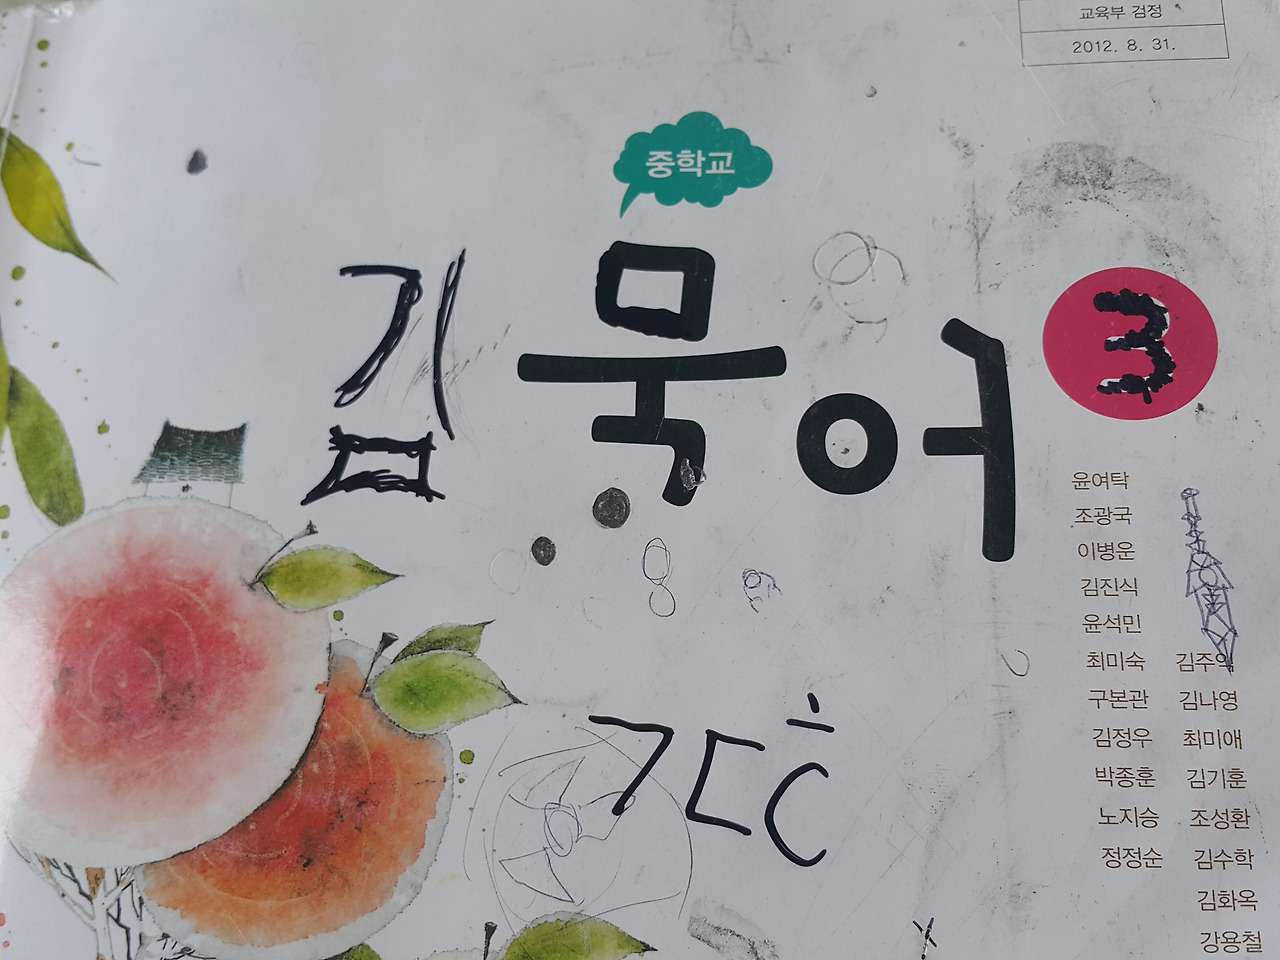 교육부 검정
2012. 8. 31.
중학교
김묵어 3
윤여탁
조광국
이병운
김진식
윤석민
최미숙 김주익
구본관 김나영
김정우 최미애
박종훈 김기훈
노지승 조성환
정정순 김수학
김화옥
강용철
ㄱㄷㅎ